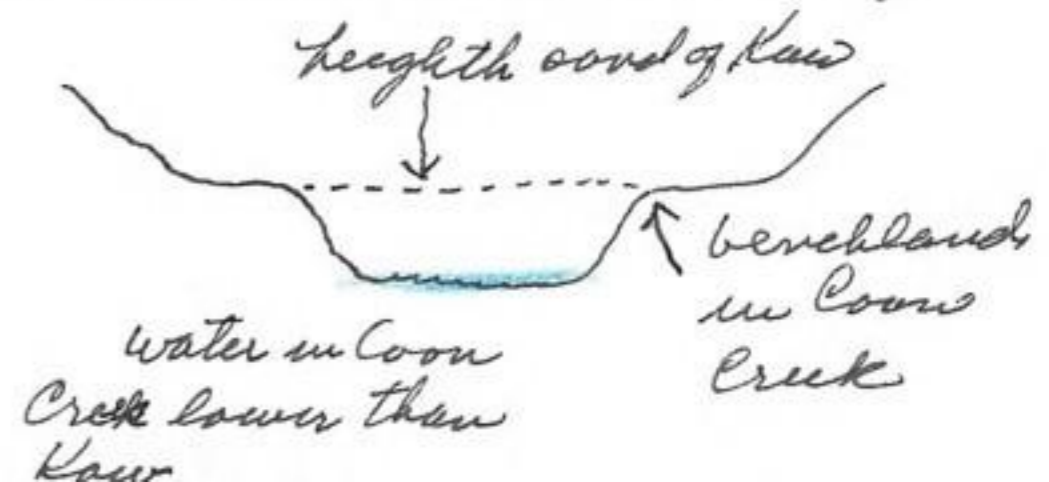 heighth sand of Kaw
benchlands
in Coon
Creek
water in Coon
Creek lower than
Kaw